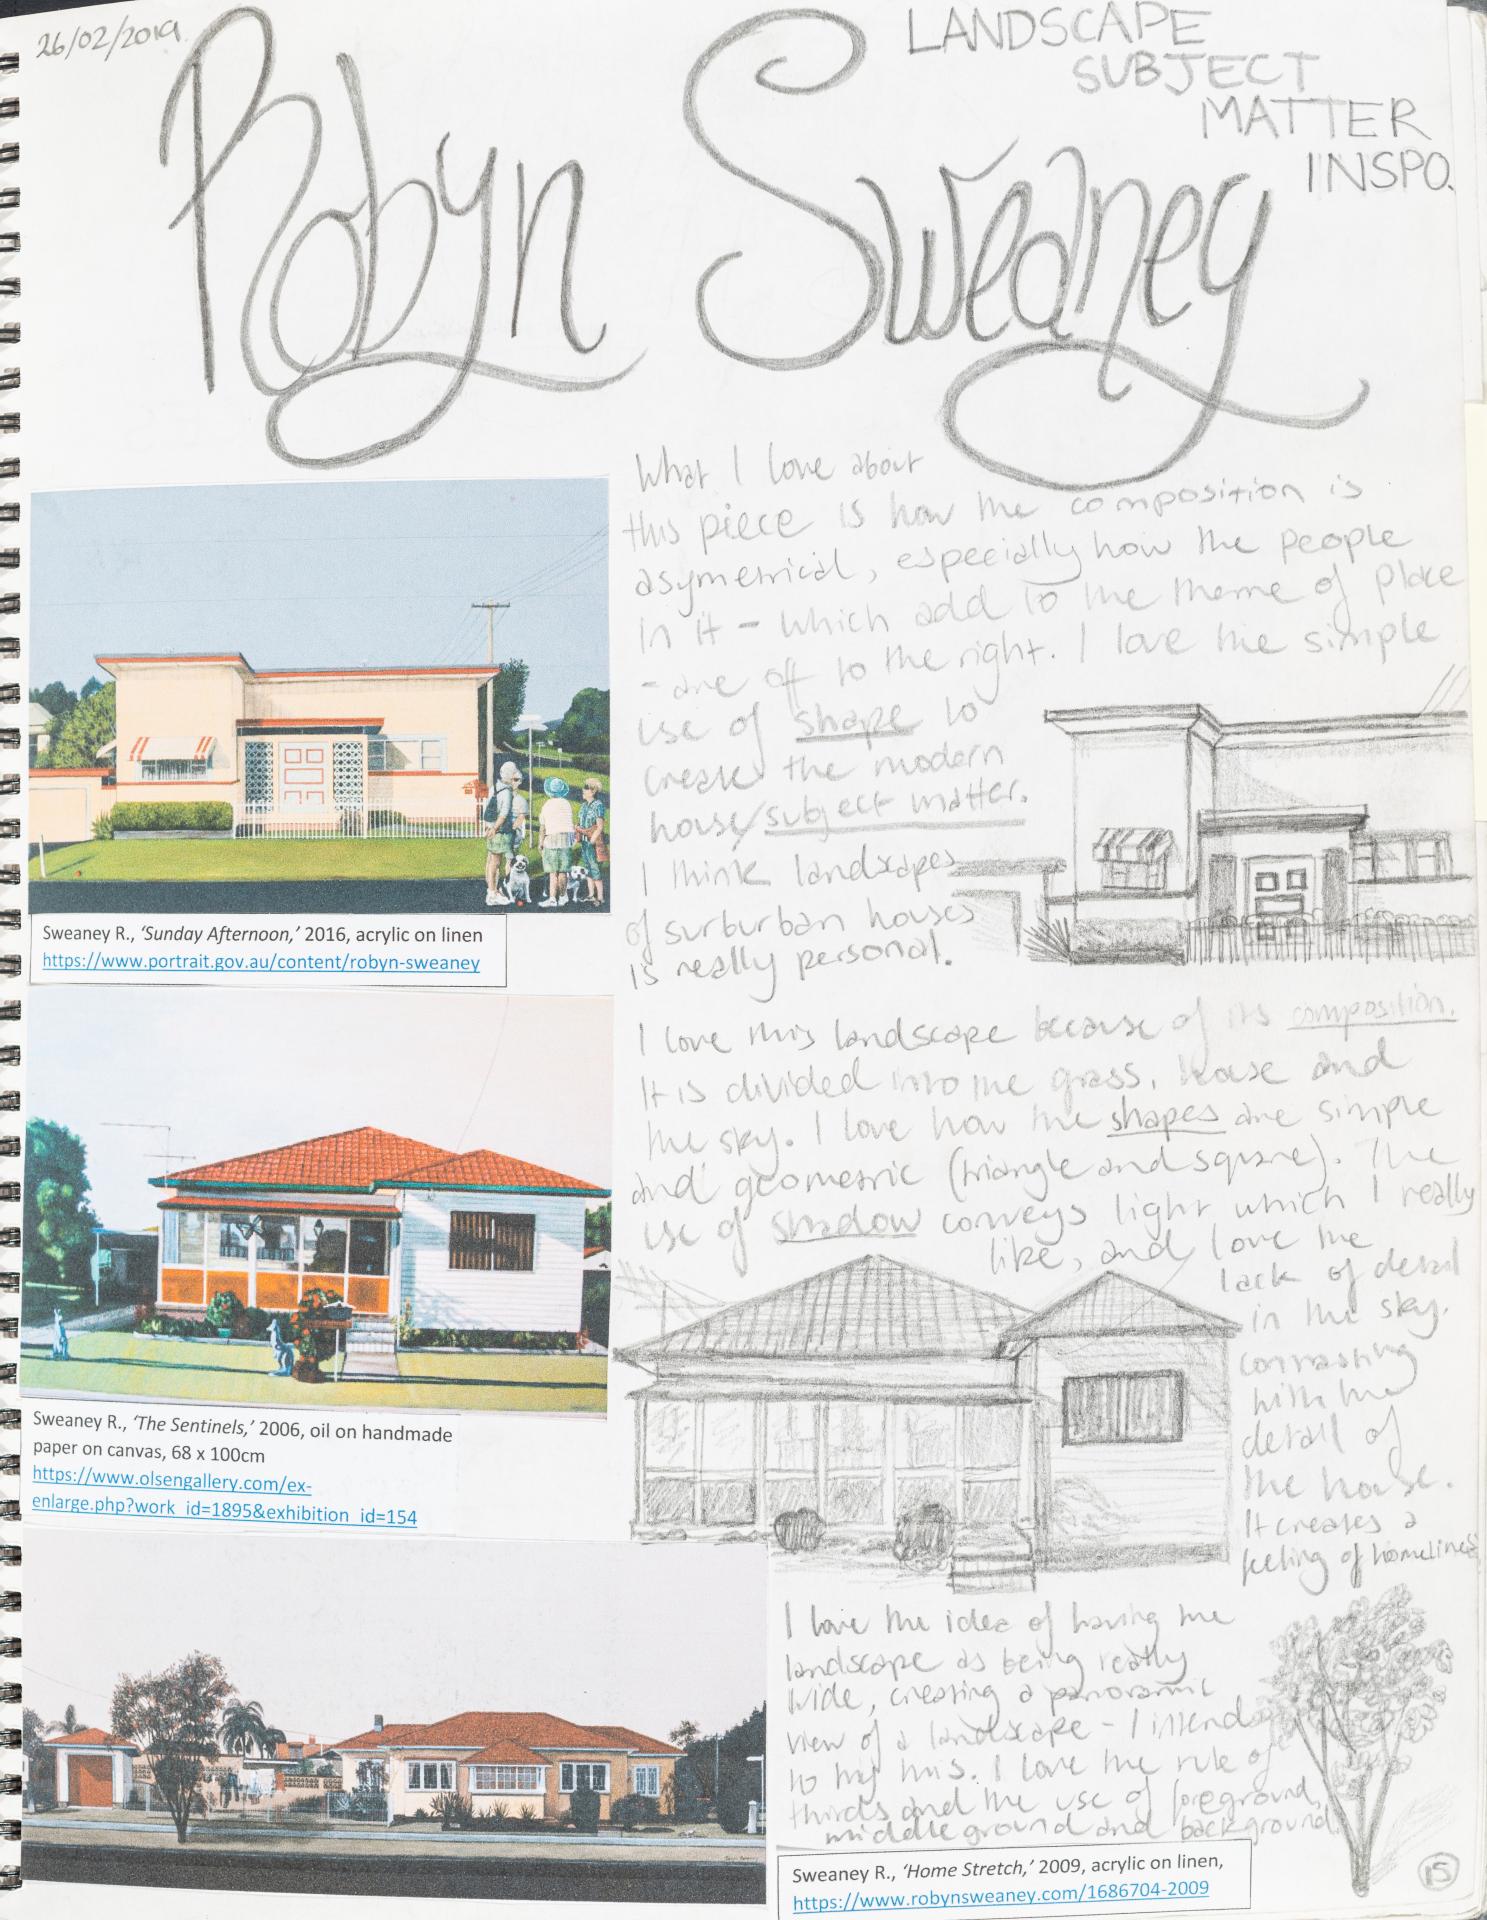 26/02/2019
Robyn Sweaney
LANDSCAPE
SUBJECT
MATTER
INSPO.
What I love about
this piece is how the composition is
asymetrical, especially how the people
in it - which add to the theme of place
- are off to the right. I love the simple
use of shape to
create the modern
house/subject matter.
I think landscapes
of surburban houses
is really personal.
Sweaney R., 'Sunday Afternoon,' 2016, acrylic on linen
https://www.portrait.gov.au/content/robyn-sweaney
I love this landscape because of its composition.
It is divided into the grass, house and
the sky. I love how the shapes are simple
and geometric (triangle and square). The
use of shadow conveys light which I really
like, and love the
lack of detail
in the sky,
contrasting
with the
detail of
the house.
It creates a
feeling of homeliness
Sweaney R., 'The Sentinels,' 2006, oil on handmade
paper on canvas, 68 x 100cm
https://www.olsengallery.com/ex-
enlarge.php?work_id=1895&exhibition_id=154
I love the idea of having the
landscape as being really
wide, creating a panoramic
view of a landscape - I intend
to try this. I love the rule of
thirds and the use of foreground,
middle ground and background.
Sweaney R., 'Home Stretch,' 2009, acrylic on linen,
https://www.robynsweaney.com/1686704-2009
15